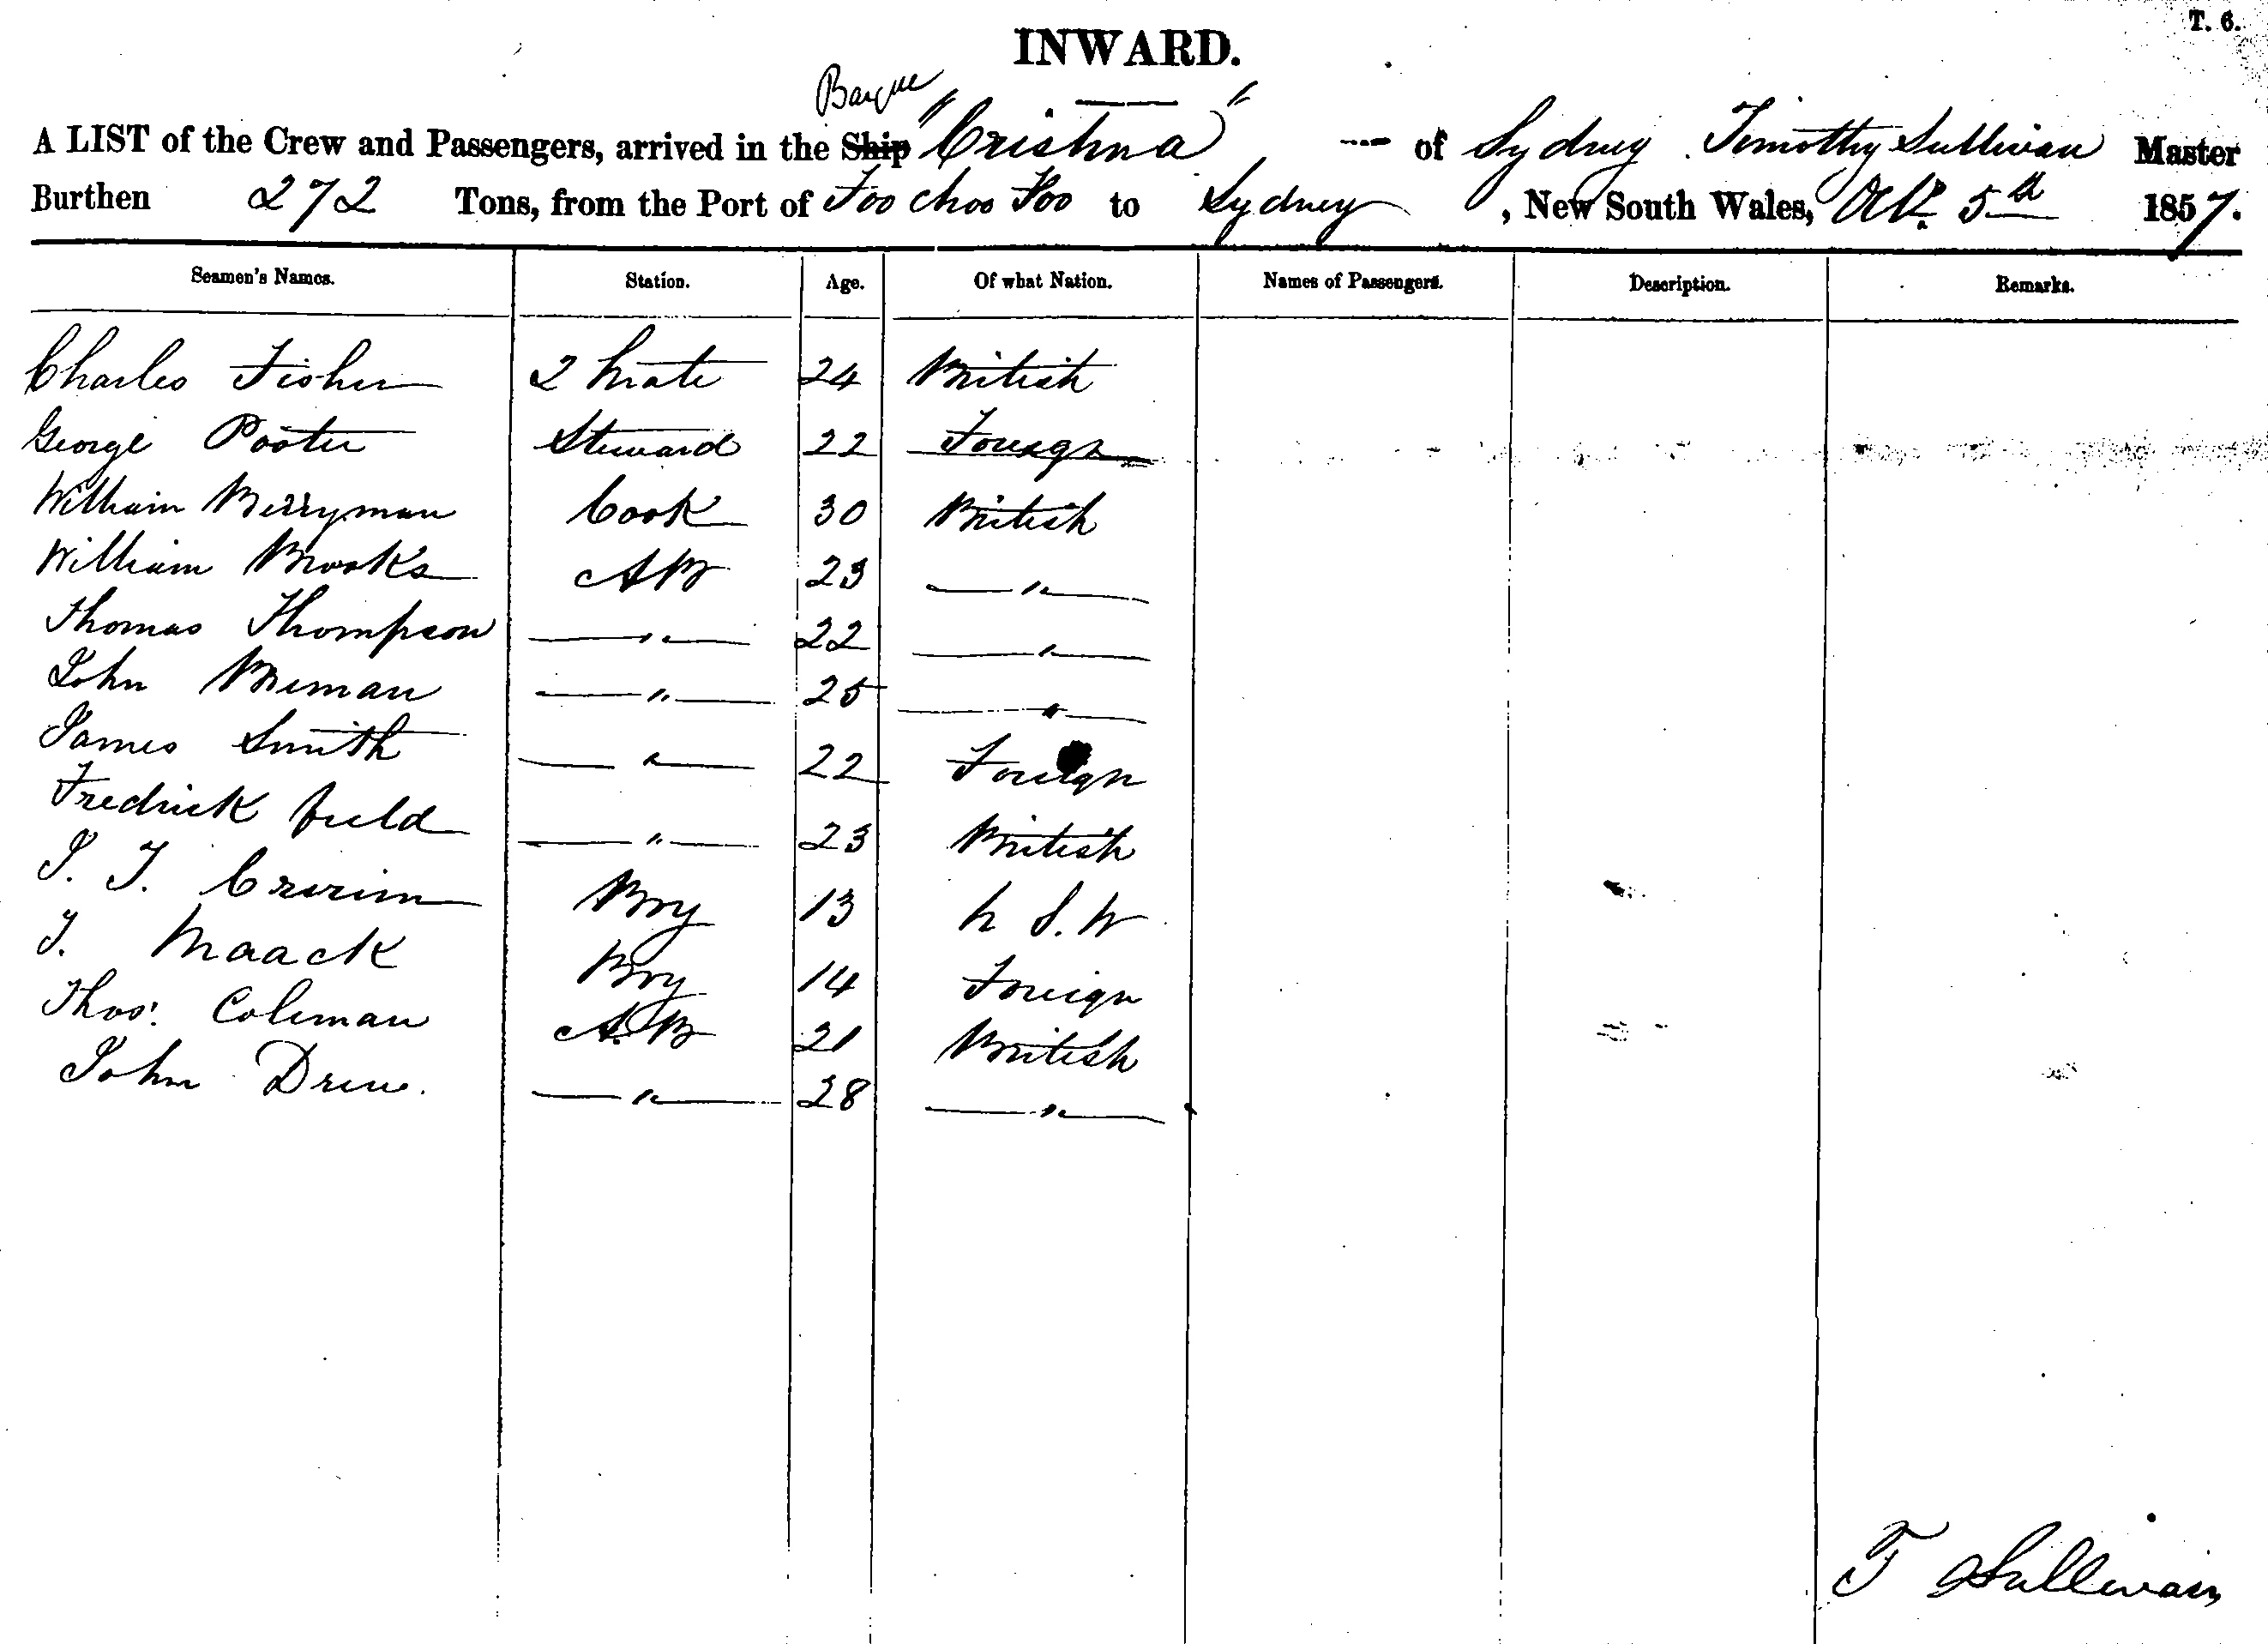 T. 6.
INWARD.
Barque
A LIST of the Crew and Passengers, arrived in the Ship "Crishna" of Sydney Timothy Sullivan Master
Burthen 272 Tons, from the Port of Foo Choo Foo to Sydney, New South Wales, Octr. 5th 1857.
Seamen's Names. Station. Age. Of what Nation. Names of Passengers. Description. Remarks.
Charles Fisher 2 Mate 24 British
George Steward 22 Foreign
William Berryman Cook 30 British
William Brooks AB 23 "
Thomas Thompson " 22 "
John " 25 "
James Smith " 22 Foreign
Fredrick field " 23 British
Boy 13 N S. W
Maack Boy 14 Foreign
Thos. Coleman A.B 21 British
John Drew. " 28 "
T Sullivan